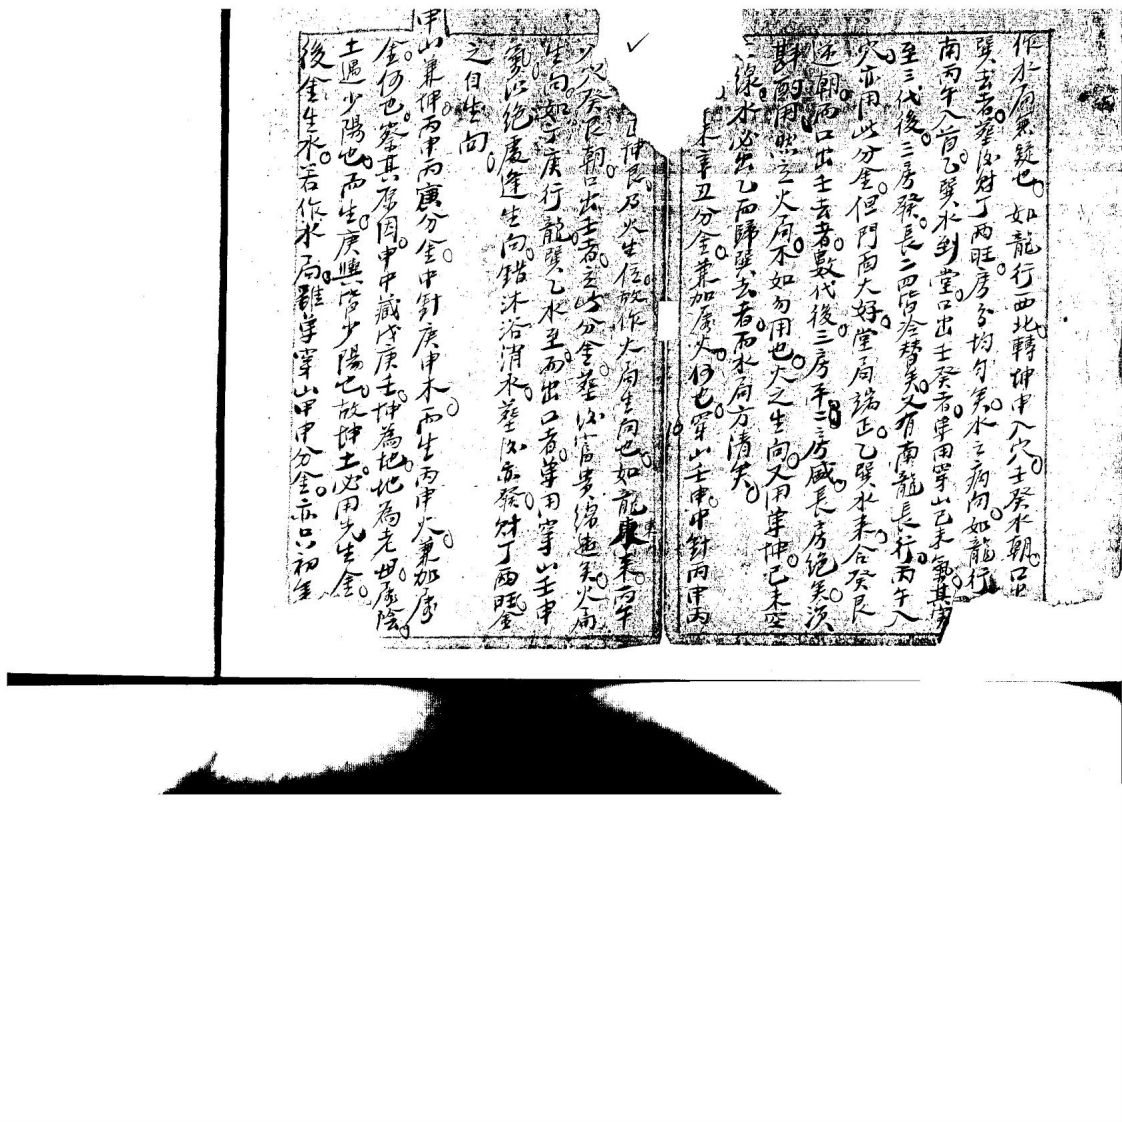 作水局無疑也。如龍行西北轉坤申入穴。壬癸水朝。口出
巽去者。葬後財丁兩旺。房分均勻矣。水之病向。如龍行
南丙午入首。乙巽水到堂。口出壬癸者。単用穿山己未氣。其家
至三代後。三房發。長二四皆冷替矣。又有南龍長行。丙午入
穴。亦用此分金。但門面大好。堂局端正。乙巽水來合癸艮
逆朝。而口出壬去者。數代後。三房平。二房盛。長房絶矣。須
斟酌用。然立火局。不如勿用也。火之生向。又用単坤。己未空
線。水必出乙而歸巽去者。而水局方清矣。
未辛丑分金。兼加属火。何也。穿山壬申。中針丙申丙
坤艮及火生位。故作火局生向也。如龍東来。丙午
穴。癸艮朝。口出壬者。立此分金。葬後富貴綿遠矣。火局
生向。如立庚行龍。巽乙水至。而出口者。単用穿山壬申
氣。以絶處逢生向。錯沐浴消水。葬後亦發。財丁兩旺。金
之自生向。
申山兼坤。丙申丙寅分金。中針庚申木。而生丙申火。兼加属
金。何也。蔡其原因。申中藏戊庚壬。坤為地。地為老母。属陰。
土過少陽也。而生庚。與皆少陽也。故坤土。必用先生金。
後金生水。若作水局。雖単穿山甲申分金。亦只初年